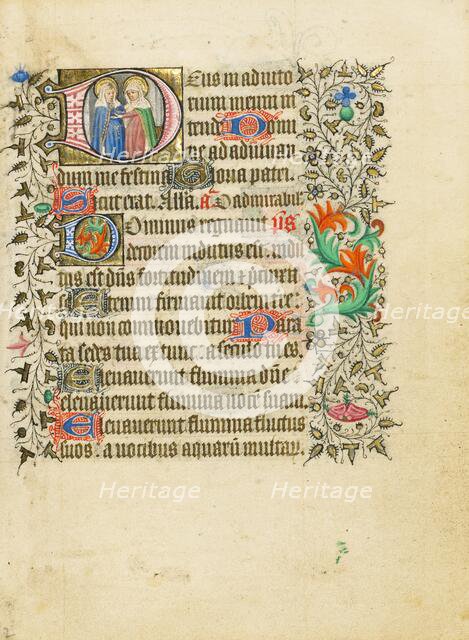 Deus in adiuto
rium meum in
tende Domi
ne ad adiuvan
dum me festina Gloria patri.
Sicut erat. Alla. A O admirabile
Dominus regnavit ps
decorem indutus est: indu
tus est dns fortitudinem et precin
Etenim firmavit orbem terre:
qui non commovebitur Para
ta sedes tua ex tunc a seculo tu es
Elevaverunt flumina dne
elevaverunt flumina vocem suam.
Elevaverunt flumina fluctus
suos: a vocibus aquarum multar
Heritage Heritage
Heritage Heritage
Heritage Heritage
2